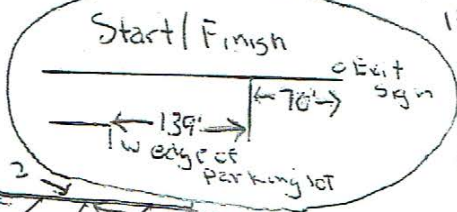 Start/Finish
Exit
Sign
70'
139'
W edge of
parking lot
2